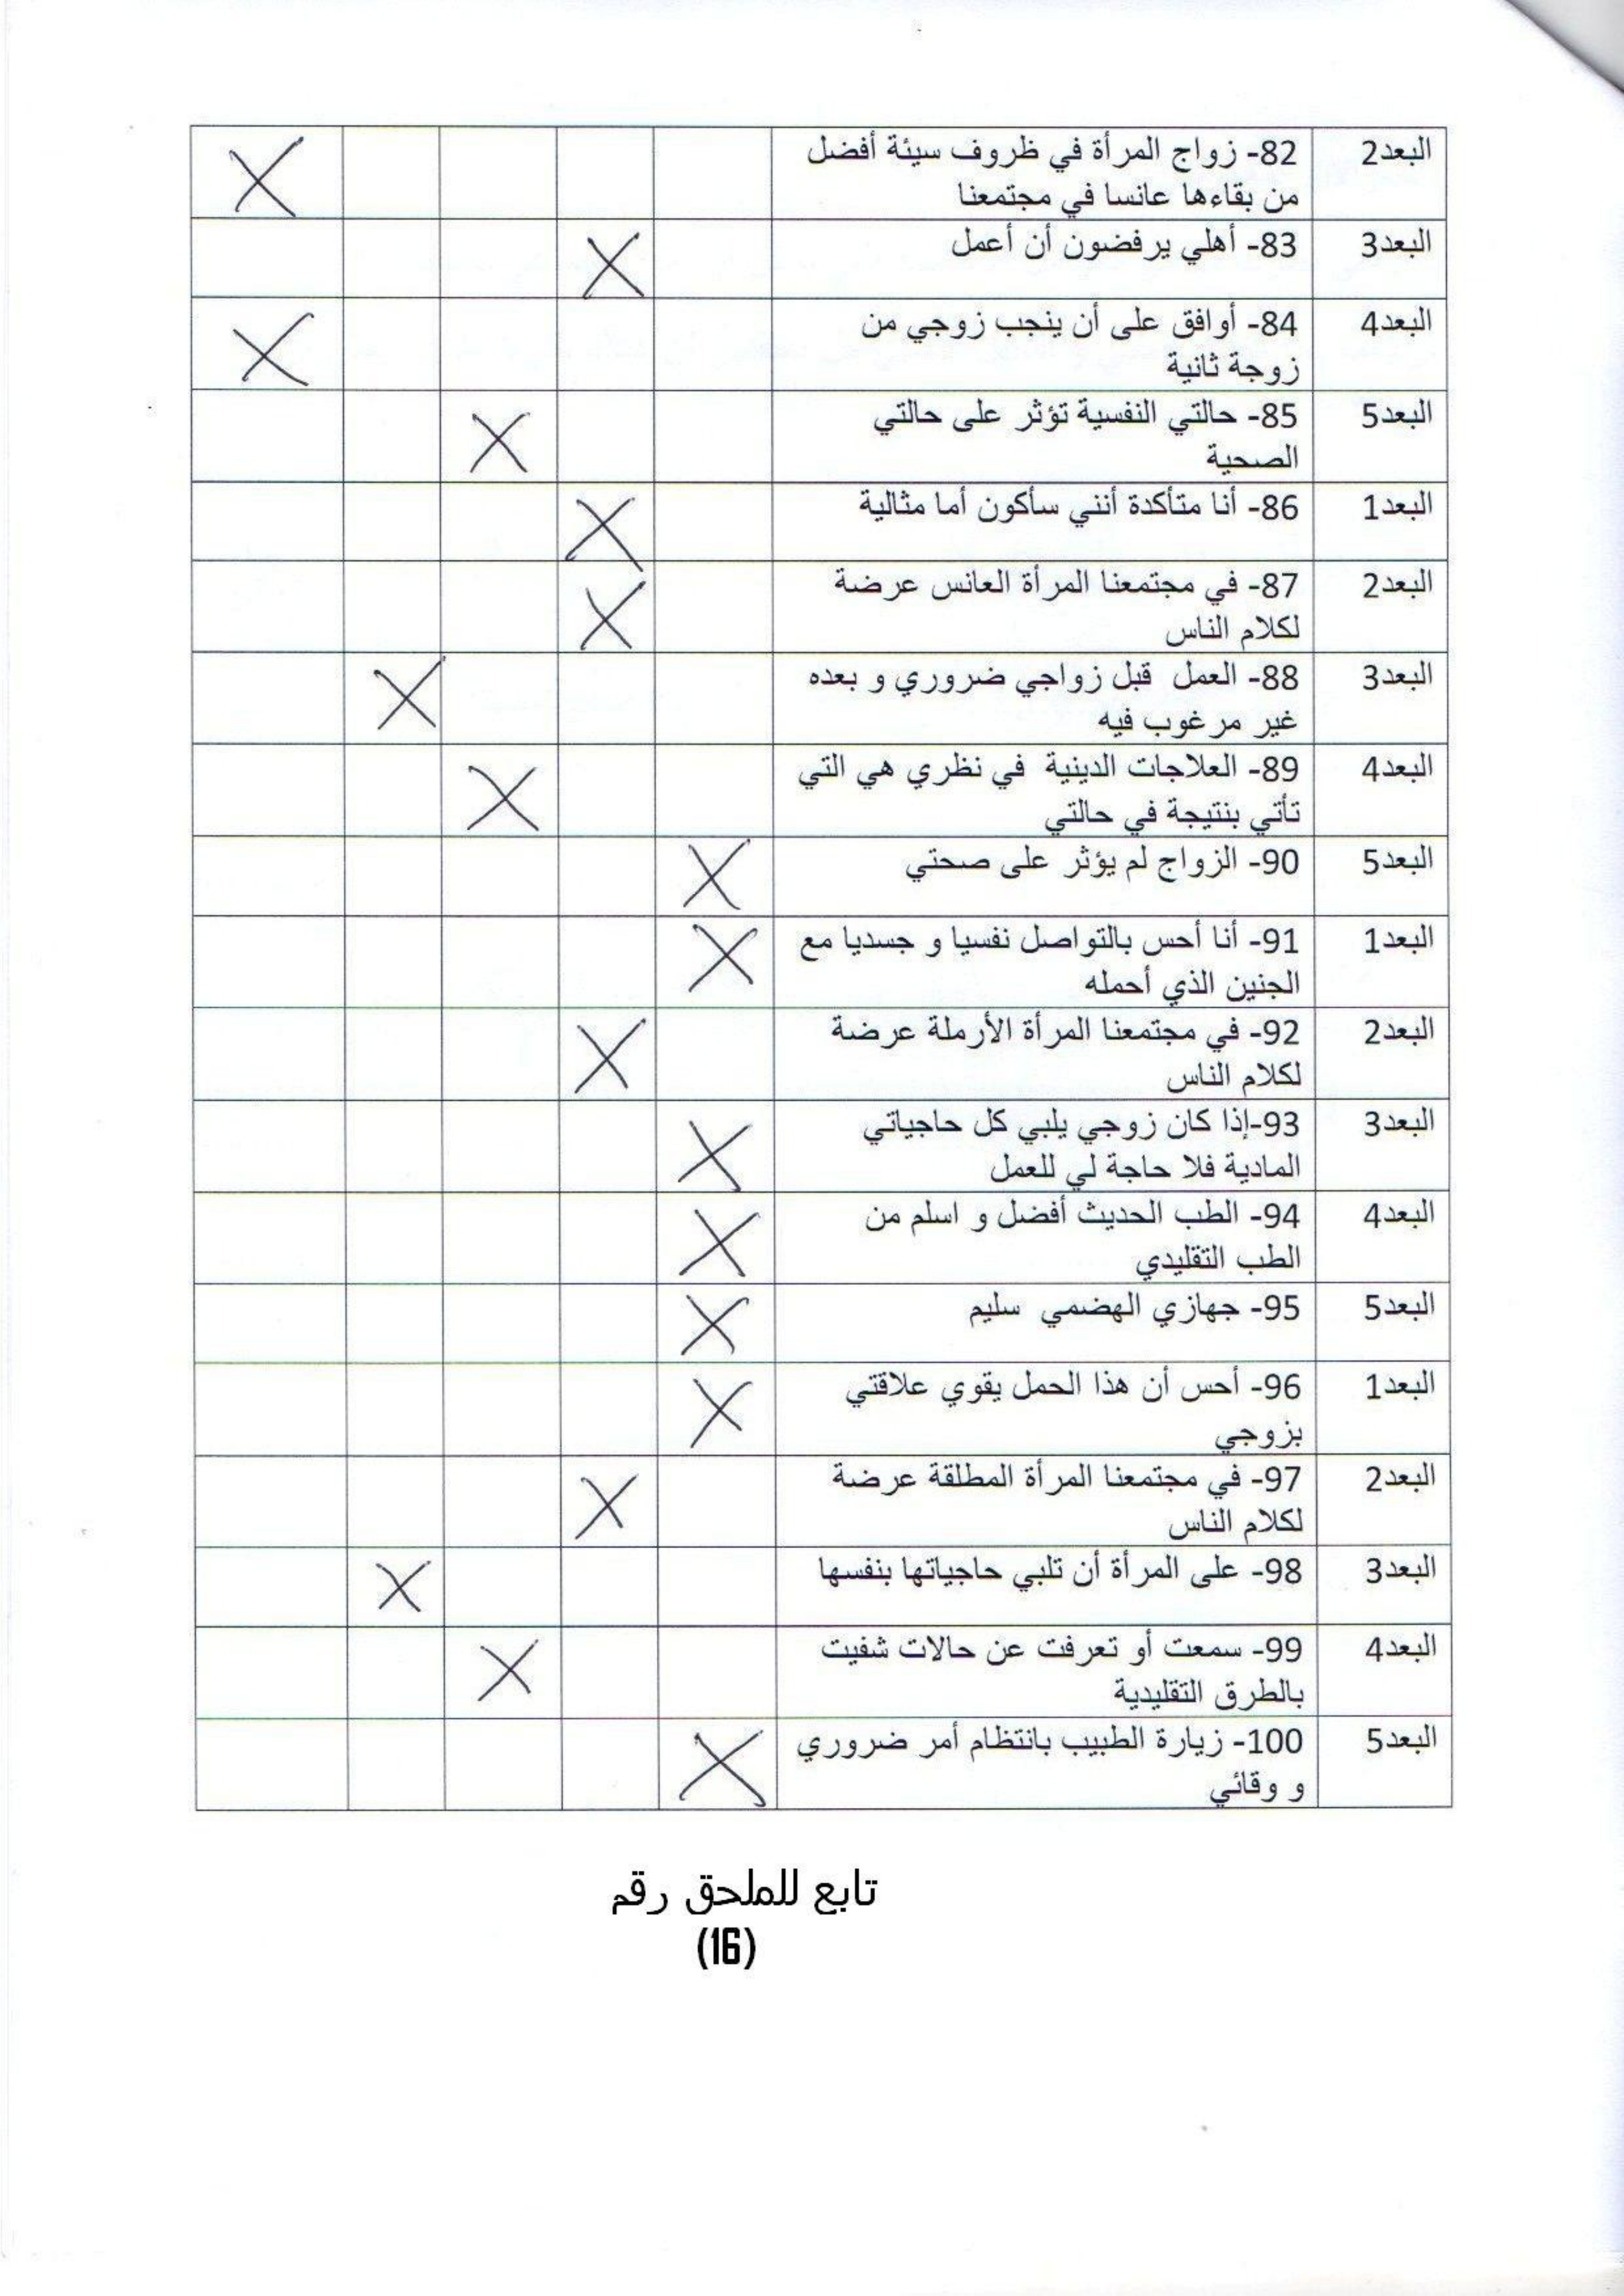 البعد2 82- زواج المرأة في ظروف سيئة أفضل
من بقاءها عانسا في مجتمعنا X
البعد3 83- أهلي يرفضون أن أعمل X
البعد4 84- أوافق على أن ينجب زوجي من
زوجة ثانية X
البعد5 85- حالتي النفسية تؤثر على حالتي
الصحية X
البعد1 86- أنا متأكدة أنني سأكون أما مثالية X
البعد2 87- في مجتمعنا المرأة العانس عرضة
لكلام الناس X
البعد3 88- العمل قبل زواجي ضروري و بعده
غير مرغوب فيه X
البعد4 89- العلاجات الدينية في نظري هي التي
تأتي بنتيجة في حالتي X
البعد5 90- الزواج لم يؤثر على صحتي X
البعد1 91- أنا أحس بالتواصل نفسيا و جسديا مع
الجنين الذي أحمله X
البعد2 92- في مجتمعنا المرأة الأرملة عرضة
لكلام الناس X
البعد3 93-إذا كان زوجي يلبي كل حاجياتي
المادية فلا حاجة لي للعمل X
البعد4 94- الطب الحديث أفضل و اسلم من
الطب التقليدي X
البعد5 95- جهازي الهضمي سليم X
البعد1 96- أحس أن هذا الحمل يقوي علاقتي
بزوجي X
البعد2 97- في مجتمعنا المرأة المطلقة عرضة
لكلام الناس X
البعد3 98- على المرأة أن تلبي حاجياتها بنفسها X
البعد4 99- سمعت أو تعرفت عن حالات شفيت
بالطرق التقليدية X
البعد5 100- زيارة الطبيب بانتظام أمر ضروري
و وقائي X
تابع للملحق رقم
(16)